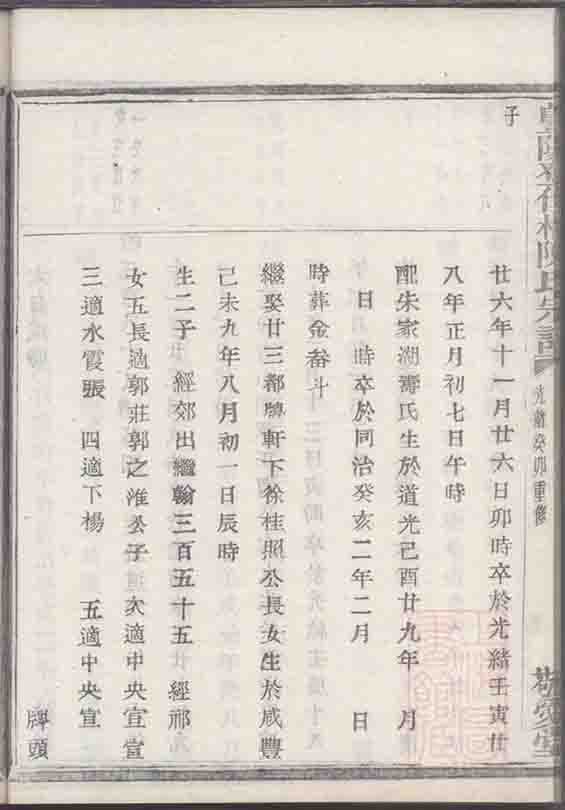 陳氏宗譜
光緒癸卯重修
子
廿六年十一月廿六日卯時卒於光緒壬寅廿
八年正月初七日午時
配朱家湖壽氏生於道光己酉廿九年 月
日 時卒於同治癸亥二年二月 日
時葬金畚斗
繼娶廿三都牌軒下徐桂照公長女生於咸豐
己未九年八月初一日辰時
生二子 經郊出繼翰三百五十五 經祁
女五長適郭莊郭之淮公子 次適中央宣宣
三適水霞張 四適下楊 五適中央宣
牌頭